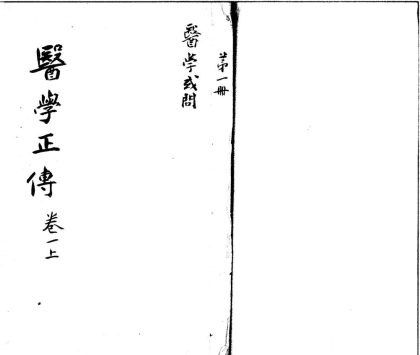 第一冊
醫學或問
醫學正傳 卷一上